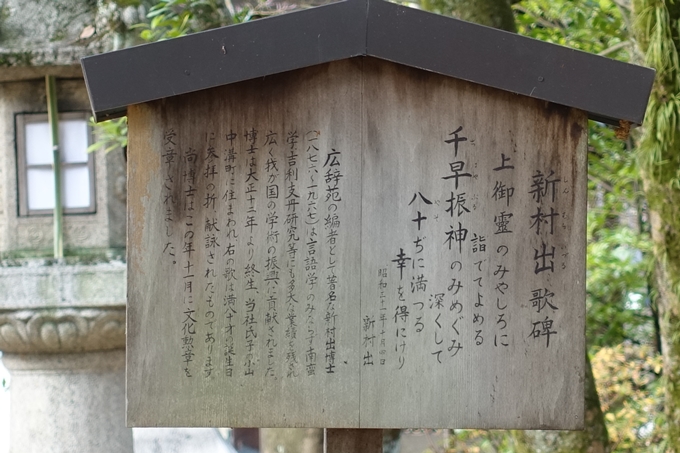 新村出歌碑
しんむらいづる
上御霊のみやしろに
詣でてよめる
千早振神のみめぐみ
深くして
八十ぢに満つる
やそ
幸を得にけり
昭和三十一年十月四日
新村出
広辞苑の編者として著名な新村出博士
(一八七六〜一九六七)は言語学のみならず南蛮
学吉利支丹研究等にも多大な業績を残され
広く我が国の学術の振興に貢献されました
博士は大正十二年より終生、当社氏子の小山
中溝町に住まわれ右の歌は満八十才の誕生日
に参拝の折、献詠されたものであります
尚博士はこの年十一月に文化勲章を
受章されました。